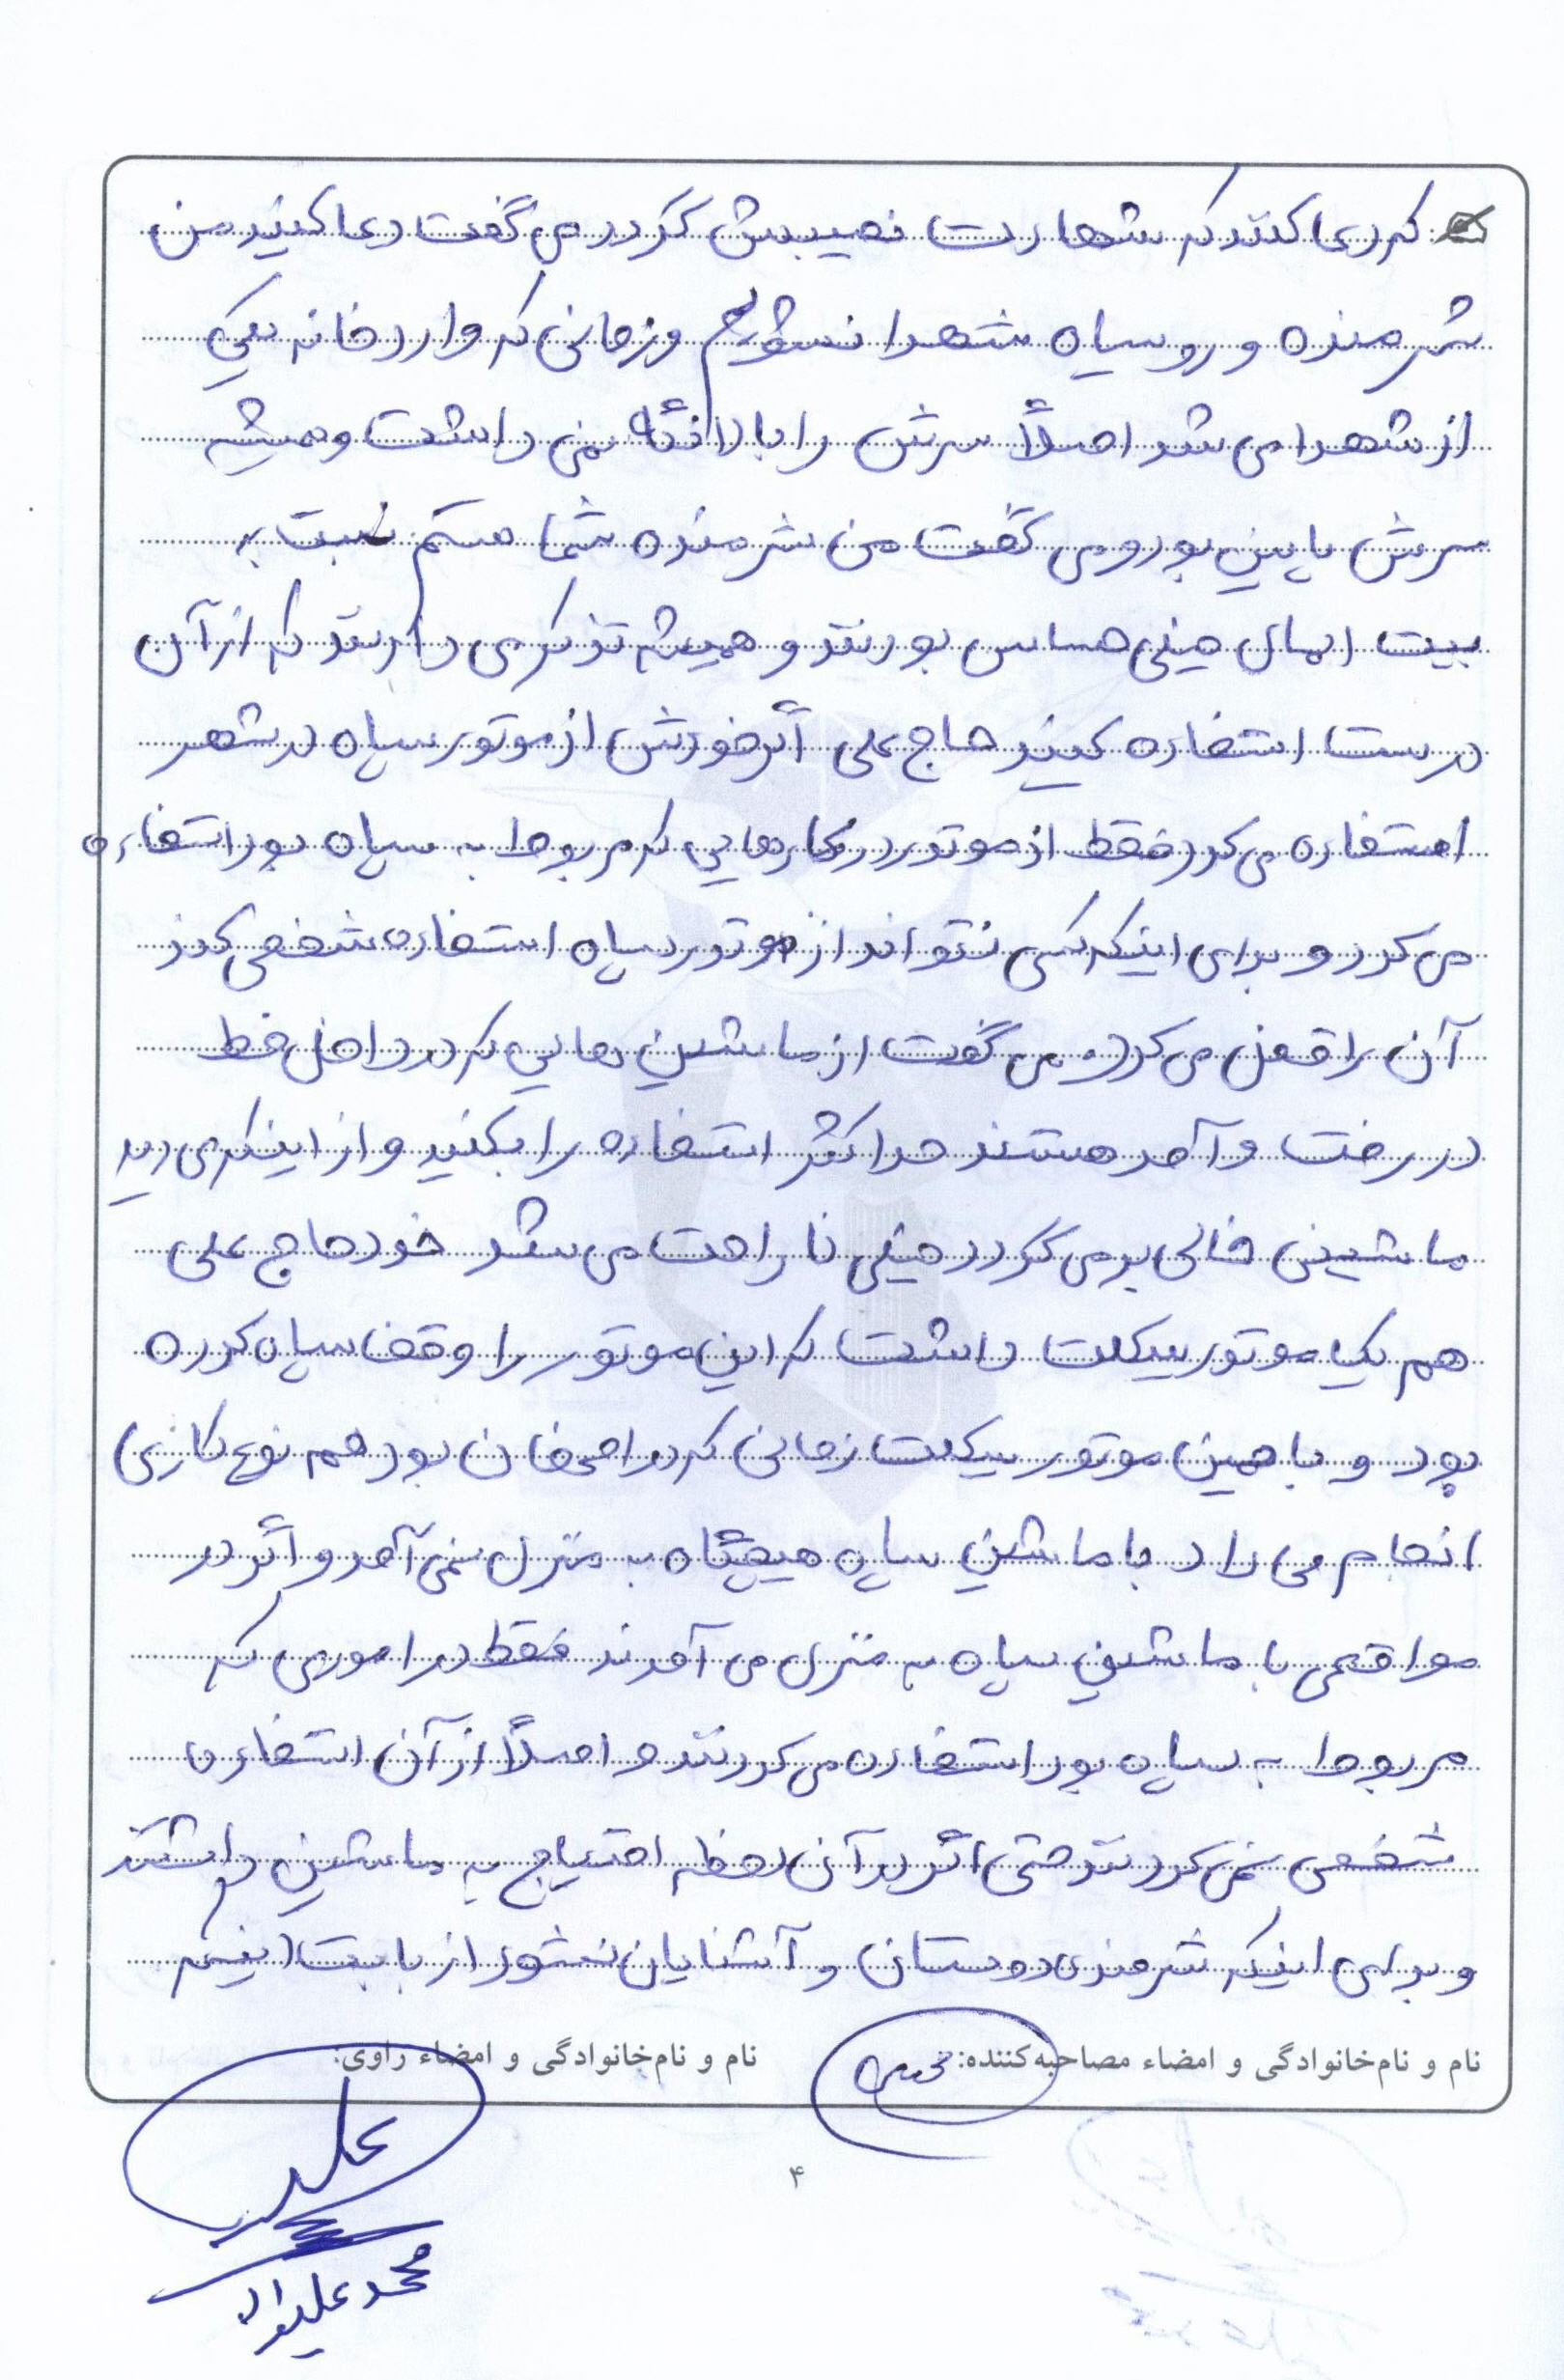 که دعا کنند که شهادت نصیبش گردد می گفت دعا کنید من
شرمنده و روسیاه شهدا نشوم و زمانی که وارد خانه یکی
از شهدا می شد اصلاً سرش را بالا نگاه نمی داشت و همیشه
سرش پایین بود و می گفت من شرمنده شما هستم نسبت به
بیت المال خیلی حساس بودند و همیشه تذکر می دادند که از آن
درست استفاده کنید حاج علی اگر خودش از موتور سپاه در شهر
استفاده می کرد فقط از موتور در کارهایی که مربوط به سپاه بود استفاده
می کرد و برای اینکه کسی نتواند از موتور سپاه استفاده شخصی کند
آن را قفل می کرد و می گفت از ماشین هایی که در داخل خط
در رفت و آمد هستند حداکثر استفاده را بکنید و از اینکه می دید
ماشین خالی برمی گردد خیلی ناراحت می شد خود حاج علی
هم یک موتور سیکلت داشت که این موتور را وقف سپاه کرده
بود و با همین موتور سیکلت زمانی که در اصفهان بود هم نوع کاری
انجام می داد با ماشین سپاه هیچگاه به منزل نمی آمد و اگر در
مواقعی با ماشین سپاه به منزل می آمدند فقط در اموری که
مربوط به سپاه بود استفاده می کردند و اصلاً از آن استفاده
شخصی نمی کردند حتی اگر در آن لحظه احتیاج به ماشین داشتند
و برای اینکه شرمنده دوستان و آشنایان نشود از بابت اینکه
نام و نام‌خانوادگی و امضاء مصاحبه‌کننده:
نام و نام‌خانوادگی و امضاء راوی:
۴
محمد علیداد